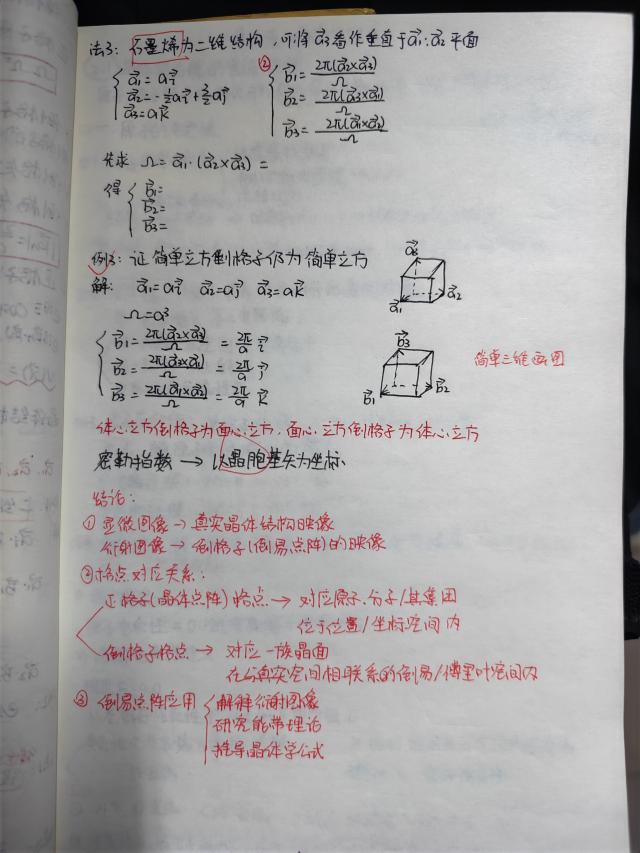 法3: 石墨烯为二维结构，可将 a⃗3 看作垂直于 a⃗1、a⃗2 平面
a⃗1 = a i⃗
a⃗2 = -1/2 a i⃗ + 3/2 a j⃗
a⃗3 = a k⃗
② b⃗1 = 2π(a⃗2×a⃗3)/Ω
b⃗2 = 2π(a⃗3×a⃗1)/Ω
b⃗3 = 2π(a⃗1×a⃗2)/Ω
先求 Ω = a⃗1·(a⃗2×a⃗3) =
得 b⃗1 =
b⃗2 =
b⃗3 =
例3: 证简单立方倒格子仍为简单立方
解: a⃗1 = a i⃗ a⃗2 = a j⃗ a⃗3 = a k⃗
Ω = a³
a⃗3
a⃗1 a⃗2
b⃗1 = 2π(a⃗2×a⃗3)/Ω = 2π/a i⃗
b⃗2 = 2π(a⃗3×a⃗1)/Ω = 2π/a j⃗
b⃗3 = 2π(a⃗1×a⃗2)/Ω = 2π/a k⃗
b⃗3
b⃗1 b⃗2
简单三维画图
体心立方倒格子为面心立方，面心立方倒格子为体心立方
密勒指数 → 以晶胞基矢为坐标
结论:
① 显微图像 → 真实晶体结构映像
衍射图像 → 倒格子(倒易点阵)的映像
② 格点对应关系:
正格子(晶体点阵)格点 → 对应原子、分子/其集团
位于位置/坐标空间内
倒格子格点 → 对应一族晶面
在与真实空间相联系的倒易/傅里叶空间内
③ 倒易点阵应用
解释衍射图像
研究能带理论
推导晶体学公式